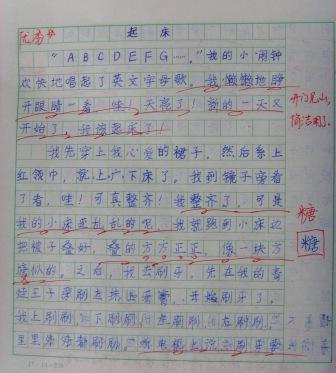 起床
"ABCDEFG……"我的小闹钟
欢快地唱起了英文字母歌,我懒懒地睁
开眼睛一看,哇!天亮了!新的一天又
开始了,我该起床了!
我先穿上我心爱的裙子,然后系上
红领巾,就上下床了。我到镜子旁看
了看,哇!可真整齐!我整齐了,可是
我的小床还乱乱的呢,我就跑到小床边
把被子叠好,叠的方方正正,像一块方
糖似的。之后,我去刷牙,先在我的
开始刷牙了。
我上刷刷,下刷刷,左刷刷,右刷刷,
里里外外都刷刷。听电视上说
开门见山,
简洁明了。
糖
糖